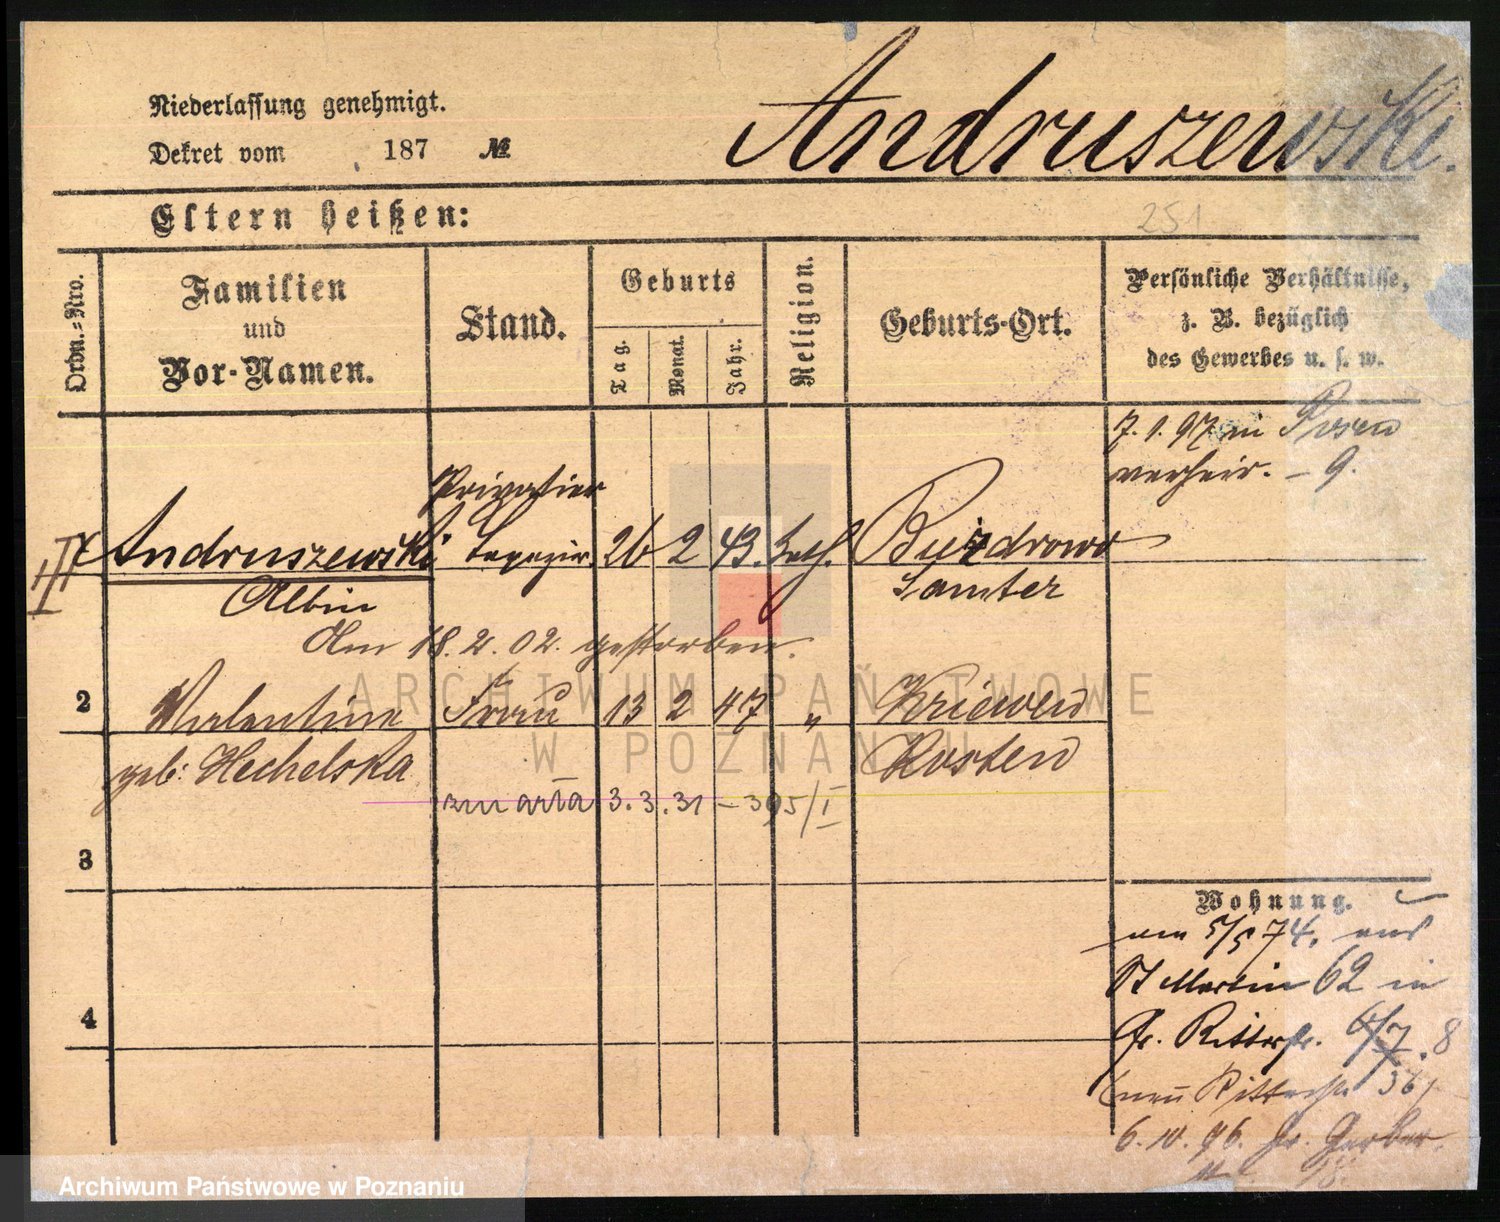 Niederlassung genehmigt.
Dekret vom 187 №
Andruszewski.
Eltern heißen:
251
Ordn.=Nro.
Familien
und
Vor-Namen.
Stand.
Geburts
Tag.
Monat.
Jahr.
Religion.
Geburts-Ort.
Persönliche Verhältnisse,
z. B. bezüglich
des Gewerbes u. s. w.
7.1.97 in Posen
verheir. – 9.
Privatier
Andruszewski Tapezir. 26 2 43. kath. Buszdrowo
Albin Samter
Am 18.2.02. gestorben.
2 Valentine Frau 13 2 47 " Kriewen
geb: Hechelska Kosten
zmarła 3.3.31 – 395/I
3
4
Wohnung.
am 5/5 74. aus
St Martin 62 in
Gr. Ritterstr. 8
(neu Ritterstr. 36)
6.10.96. Gr. Gerber
ARCHIWUM PAŃSTWOWE
W POZNANIU
Archiwum Państwowe w Poznaniu